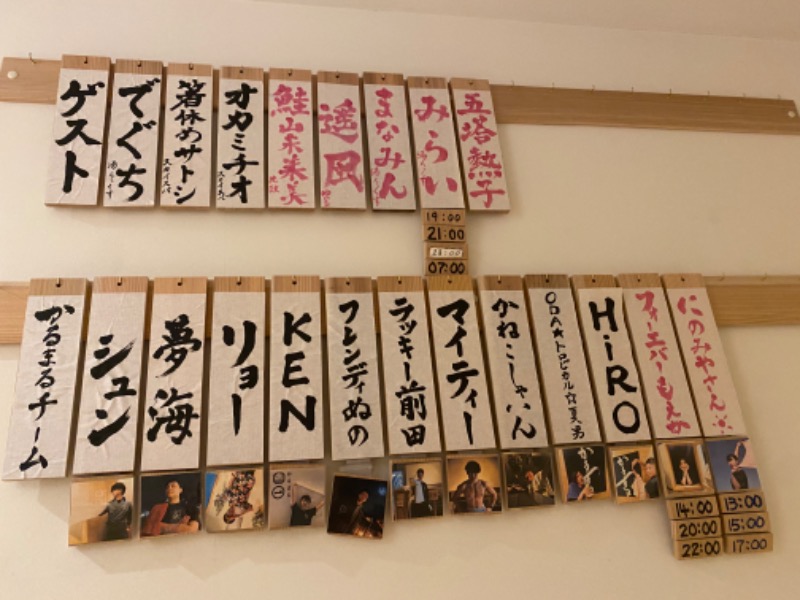 五塔熱子
みらい
まなみん
遥凪
鮭山未菜美
オカミチオ
箸休めサトシ
でぐち
ゲスト
19:00
21:00
23:00
07:00
にのみやさん
フォーエバーもえか
HiRO
ODA★トロピカル☆夏男
かねこしゃいん
マイティー
ラッキー前田
フレンディぬの
KEN
リョー
夢海
シュン
かるまるチーム
13:00
15:00
17:00
14:00
20:00
22:00